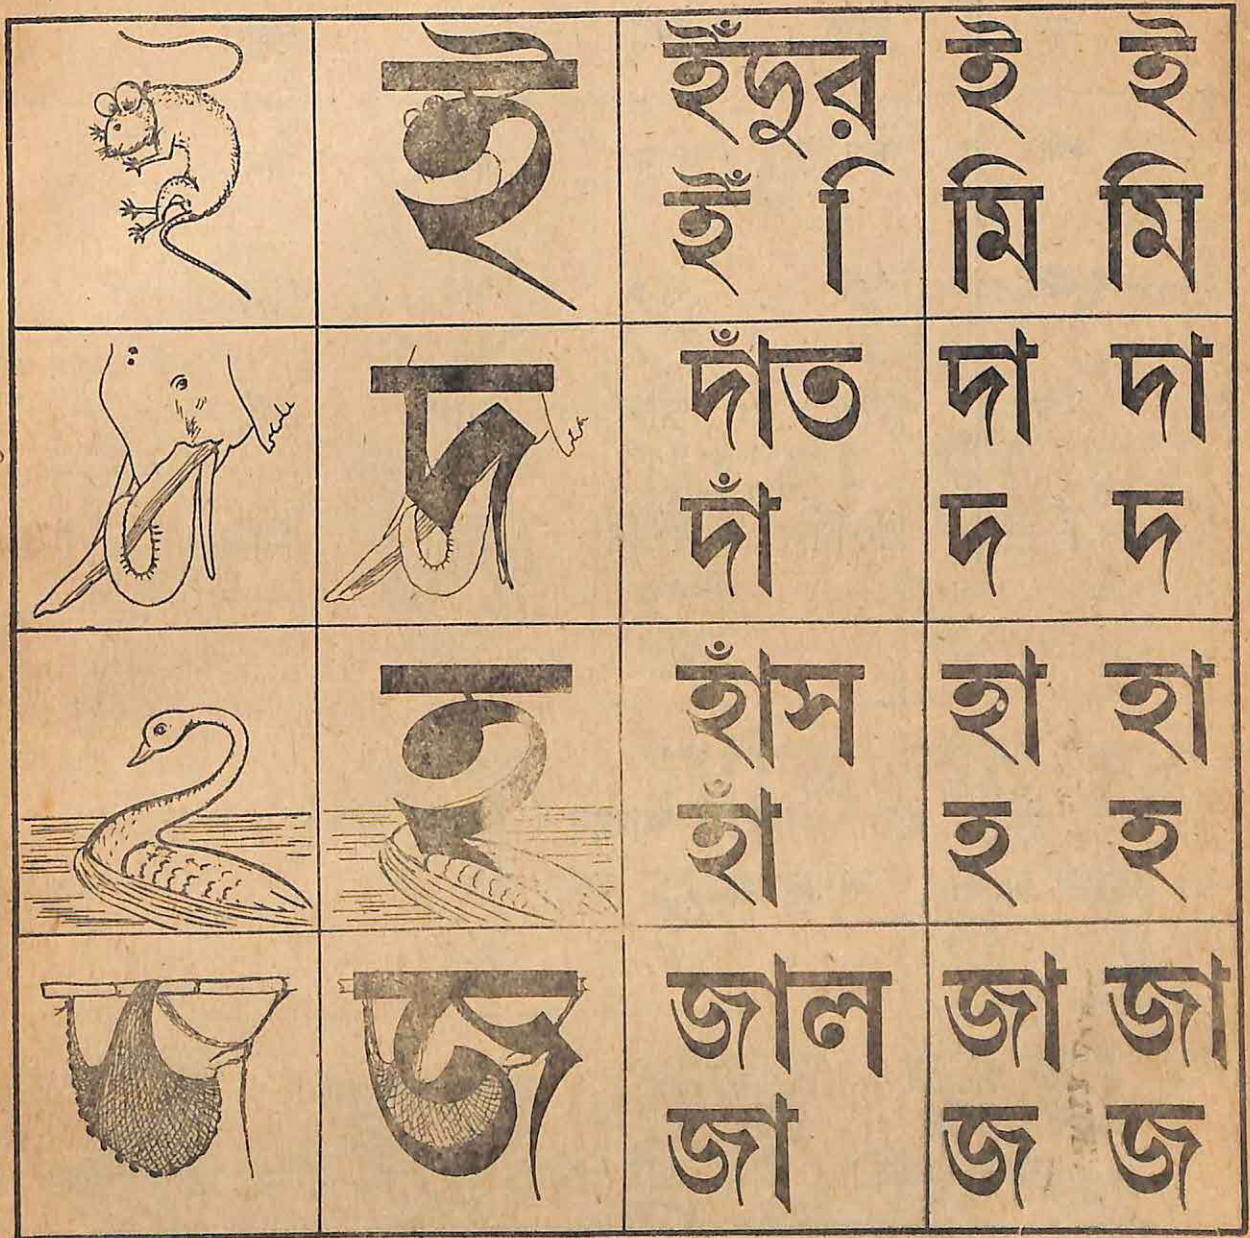 ই ইঁদুর ই ই
ইঁ ি মি মি
দ দাঁত দা দা
দাঁ দ দ
হ হাঁস হা হা
হাঁ হ হ
জ জাল জা জা
জা জ জ